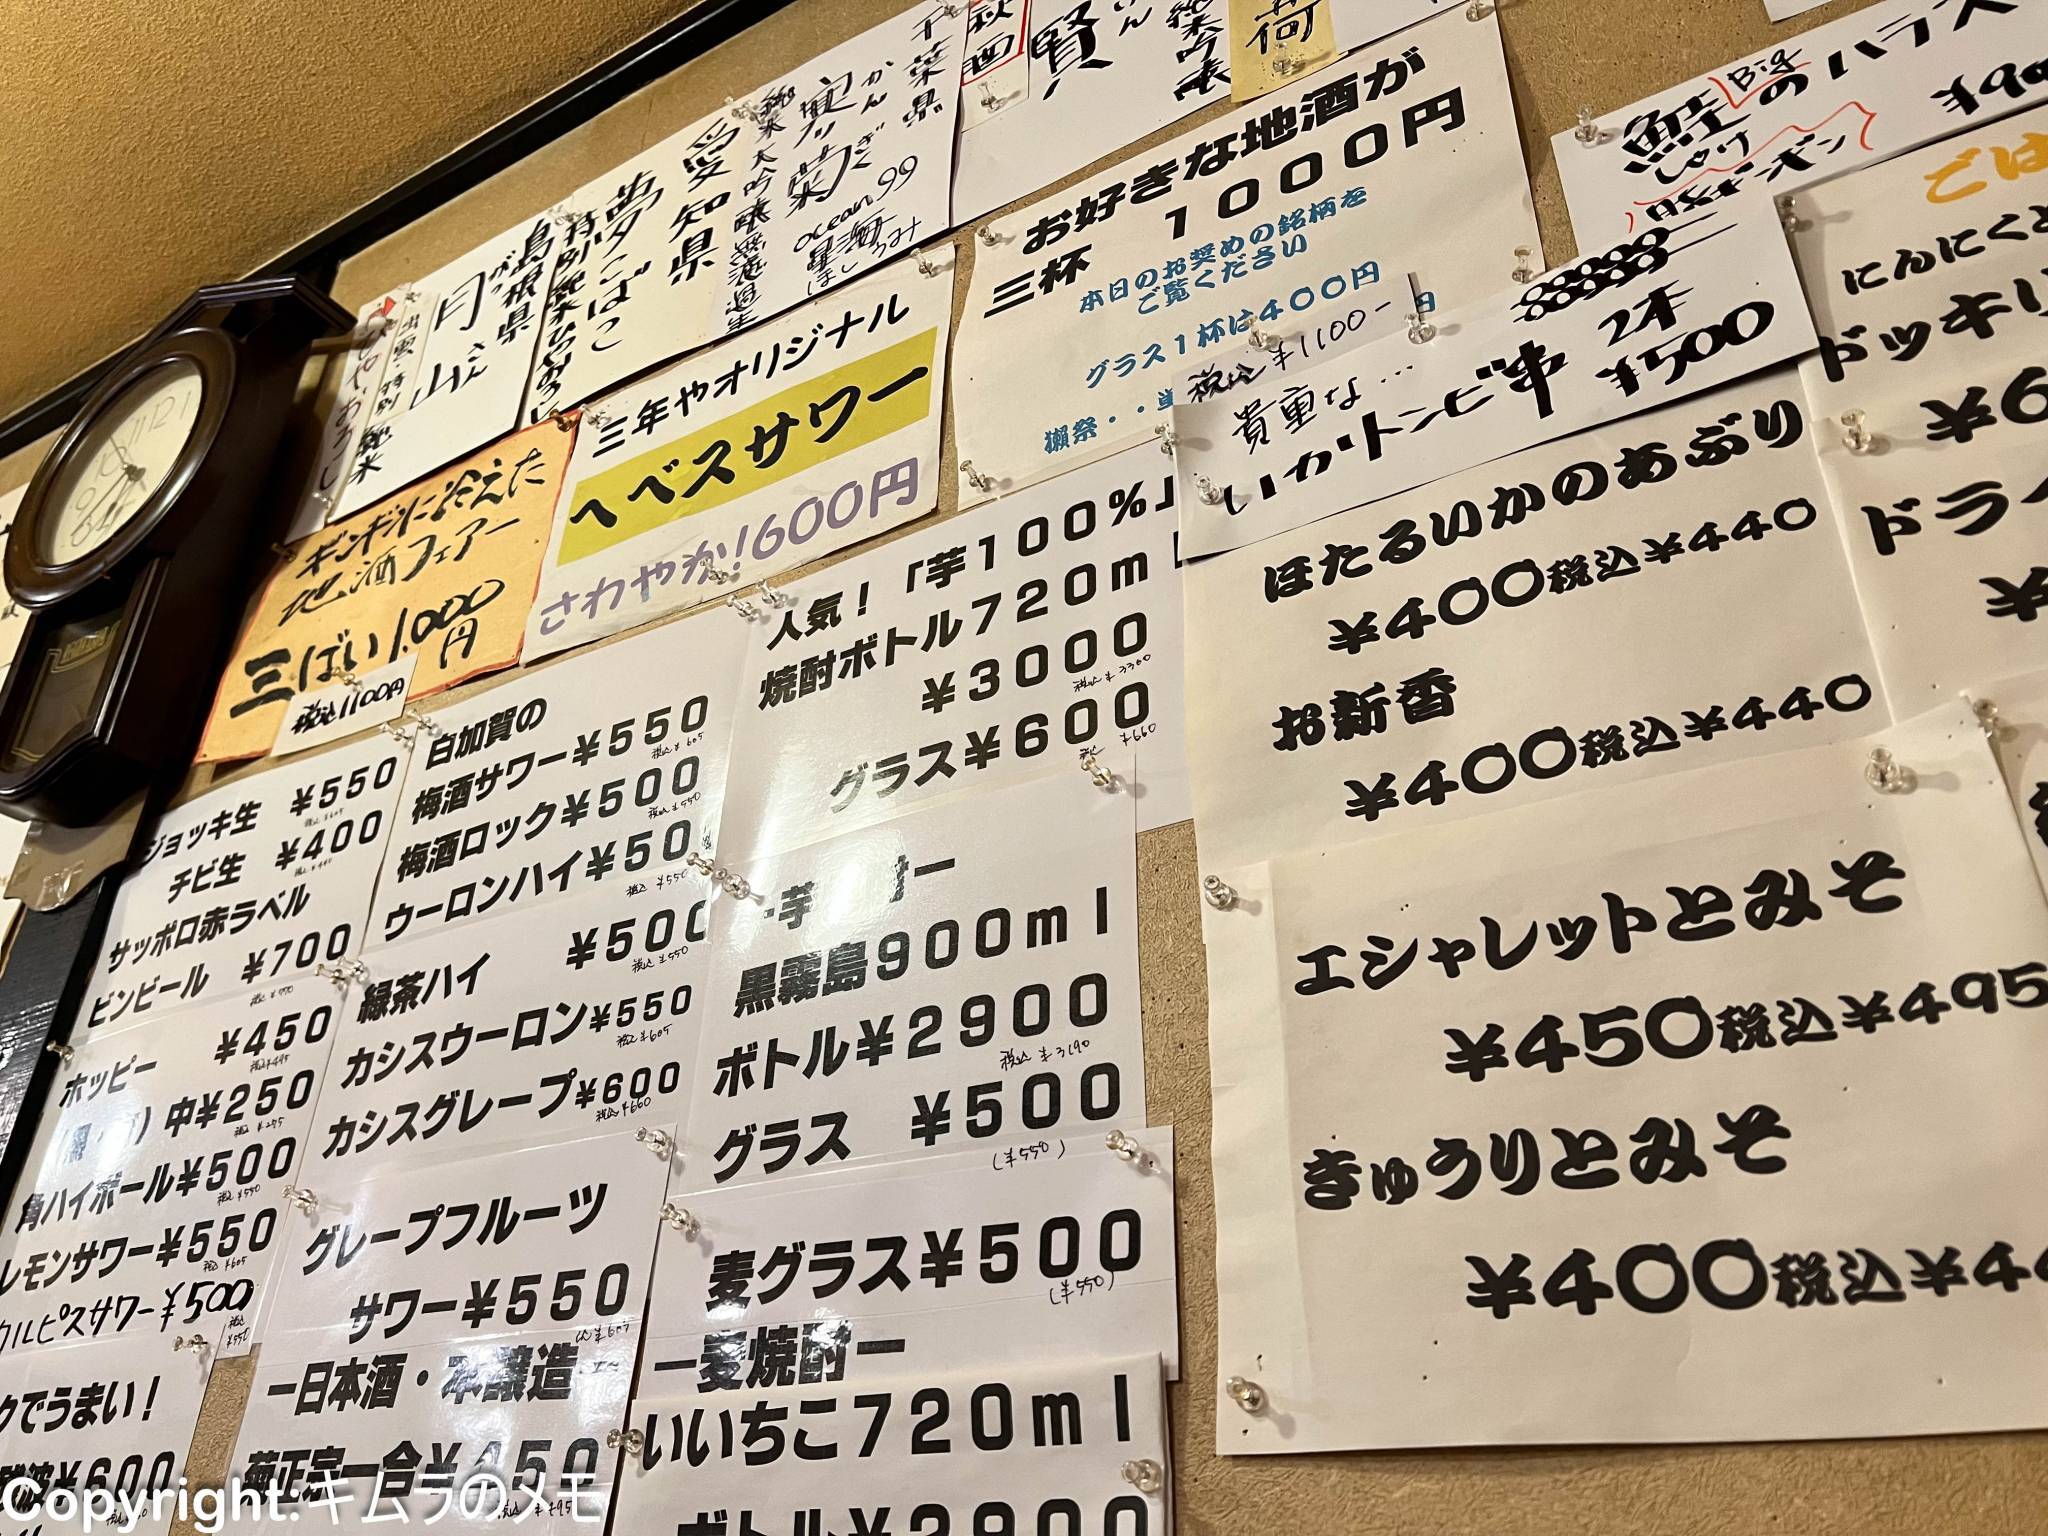 島根県
月山
出雲・特別純米
愛知県
夢たばこ
千葉県
純米大吟醸無濾過生
ocean99
賢
お好きな地酒が
三杯 1000円
本日のお奨めの銘柄を
ご覧ください
グラス1杯は400円
税込¥1100-
獺祭・・
鮭のハラス
Big
しゃけ
三年やオリジナル
ヘベスサワー
さわやか!600円
ギンギンに冷えた
地酒フェアー
三ばい1.000円
税込1100円
貴重な...
いかトンビ串 2本
¥500
ほたるいかのあぶり
¥400税込¥440
お新香
¥400税込¥440
エシャレットとみそ
¥450税込¥495
きゅうりとみそ
¥400税込¥44
ごは
にんにくと
ドッキリ
ドライ
人気!「芋100%」
焼酎ボトル720m
¥3000
税込¥3300
グラス¥600
税込¥660
黒霧島900ml
ボトル¥2900
税込¥3190
グラス ¥500
(¥550)
麦グラス¥500
(¥550)
ー麦焼酎ー
いいちこ720ml
ボトル¥2900
白加賀の
梅酒サワー¥550
税込¥605
梅酒ロック¥500
税込¥550
ウーロンハイ¥50
税込¥550
緑茶ハイ ¥500
税込¥550
カシスウーロン¥550
税込¥605
カシスグレープ¥600
税込¥660
グレープフルーツ
サワー¥550
ー日本酒・本醸造ー
菊正宗一合¥450
ジョッキ生 ¥550
税込¥605
チビ生 ¥400
税込¥440
サッポロ赤ラベル
ビンビール ¥700
税込¥770
ホッピー ¥450
税込¥495
中¥250
税込¥275
角ハイボール¥500
税込¥550
レモンサワー¥550
税込¥605
カルピスサワー¥500
税込¥550
クでうまい!
¥600
Copyright.キムラのメモ